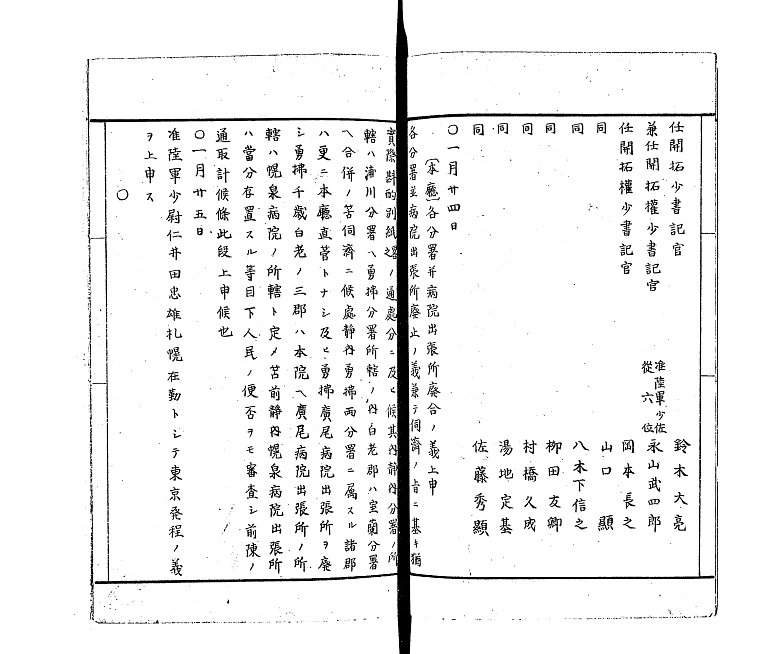 任開拓少書記官 鈴木大亮
兼任開拓權少書記官 准陸軍少佐從六位 永山武四郎
任開拓權少書記官 岡本長之
同 山口顯
同 八木下信之
同 柳田友卿
同 村橋久成
同 湯地定基
同 佐藤秀顯
〇一月廿四日
〔本廳〕各分署并病院出張所廢合ノ義上申
各分署並病院出張所廢止ノ義兼テ伺濟ノ旨ニ基キ猶
實際斟酌別紙之通處分ニ及ヒ候其內靜內分署ノ所
轄ハ浦川分署ヘ勇拂分署所轄ノ內白老郡ハ室蘭分署
ヘ合併ノ筈伺濟ニ候處靜內勇拂兩分署ニ属スル諸郡
ハ更ニ本廳直管トナシ及ヒ勇拂廣尾病院出張所ヲ廢
シ勇拂千歲白老ノ三郡ハ本院ヘ廣尾病院出張所ノ所
轄ハ幌泉病院ノ所轄ト定メ苫前靜內幌泉病院出張所
ハ當分存置スル等目下人民ノ便否ヲモ審査シ前陳ノ
通取計候條此段上申候也
〇一月廿五日
准陸軍少尉仁井田忠雄札幌在勤トシテ東京発程ノ義
ヲ上申ス
〇